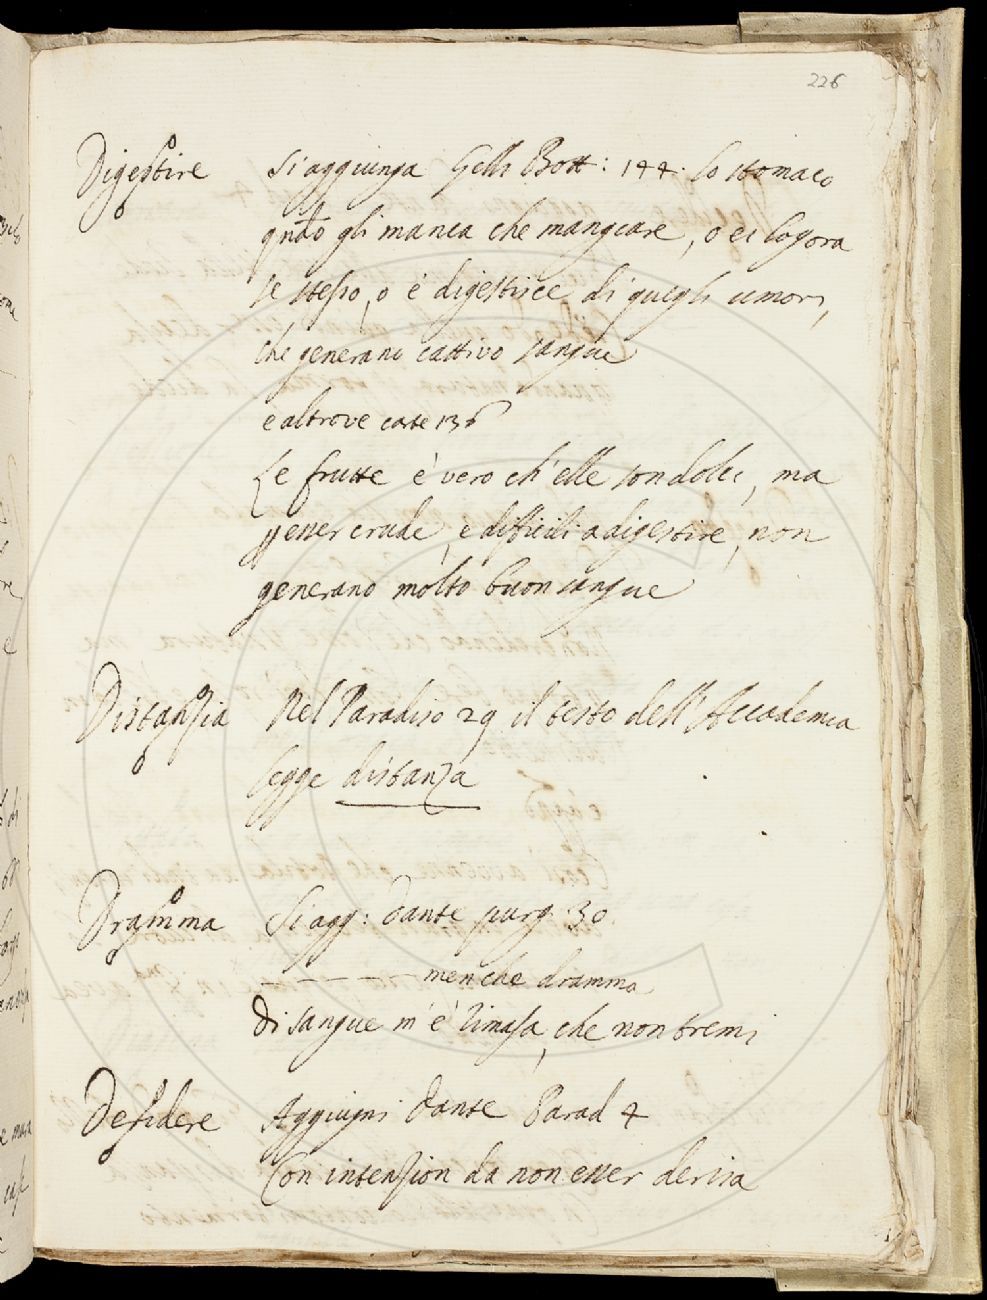 226
Digestire Si aggiunga Gelli Bott: 144. Lo stomaco
qñdo gli manca che mangiare, o ei logora
se stesso, o e' digestisce di quegli umori,
che generano cattivo sangue
e altrove carte 136
Le frutte è vero ch'elle son dolci, ma
p esser crude, e difficili a digestire, non
generano molto buon sangue
Distanzia Nel Paradiso 29 il testo dell'Accademia
legge distanza
Dramma Si agg: Dante purg. 30.
— — — — men che dramma
Di sangue m'è rimasa, che non tremi
Desidere Aggiugni Dante Parad 4
Con intenzion da non esser derisa